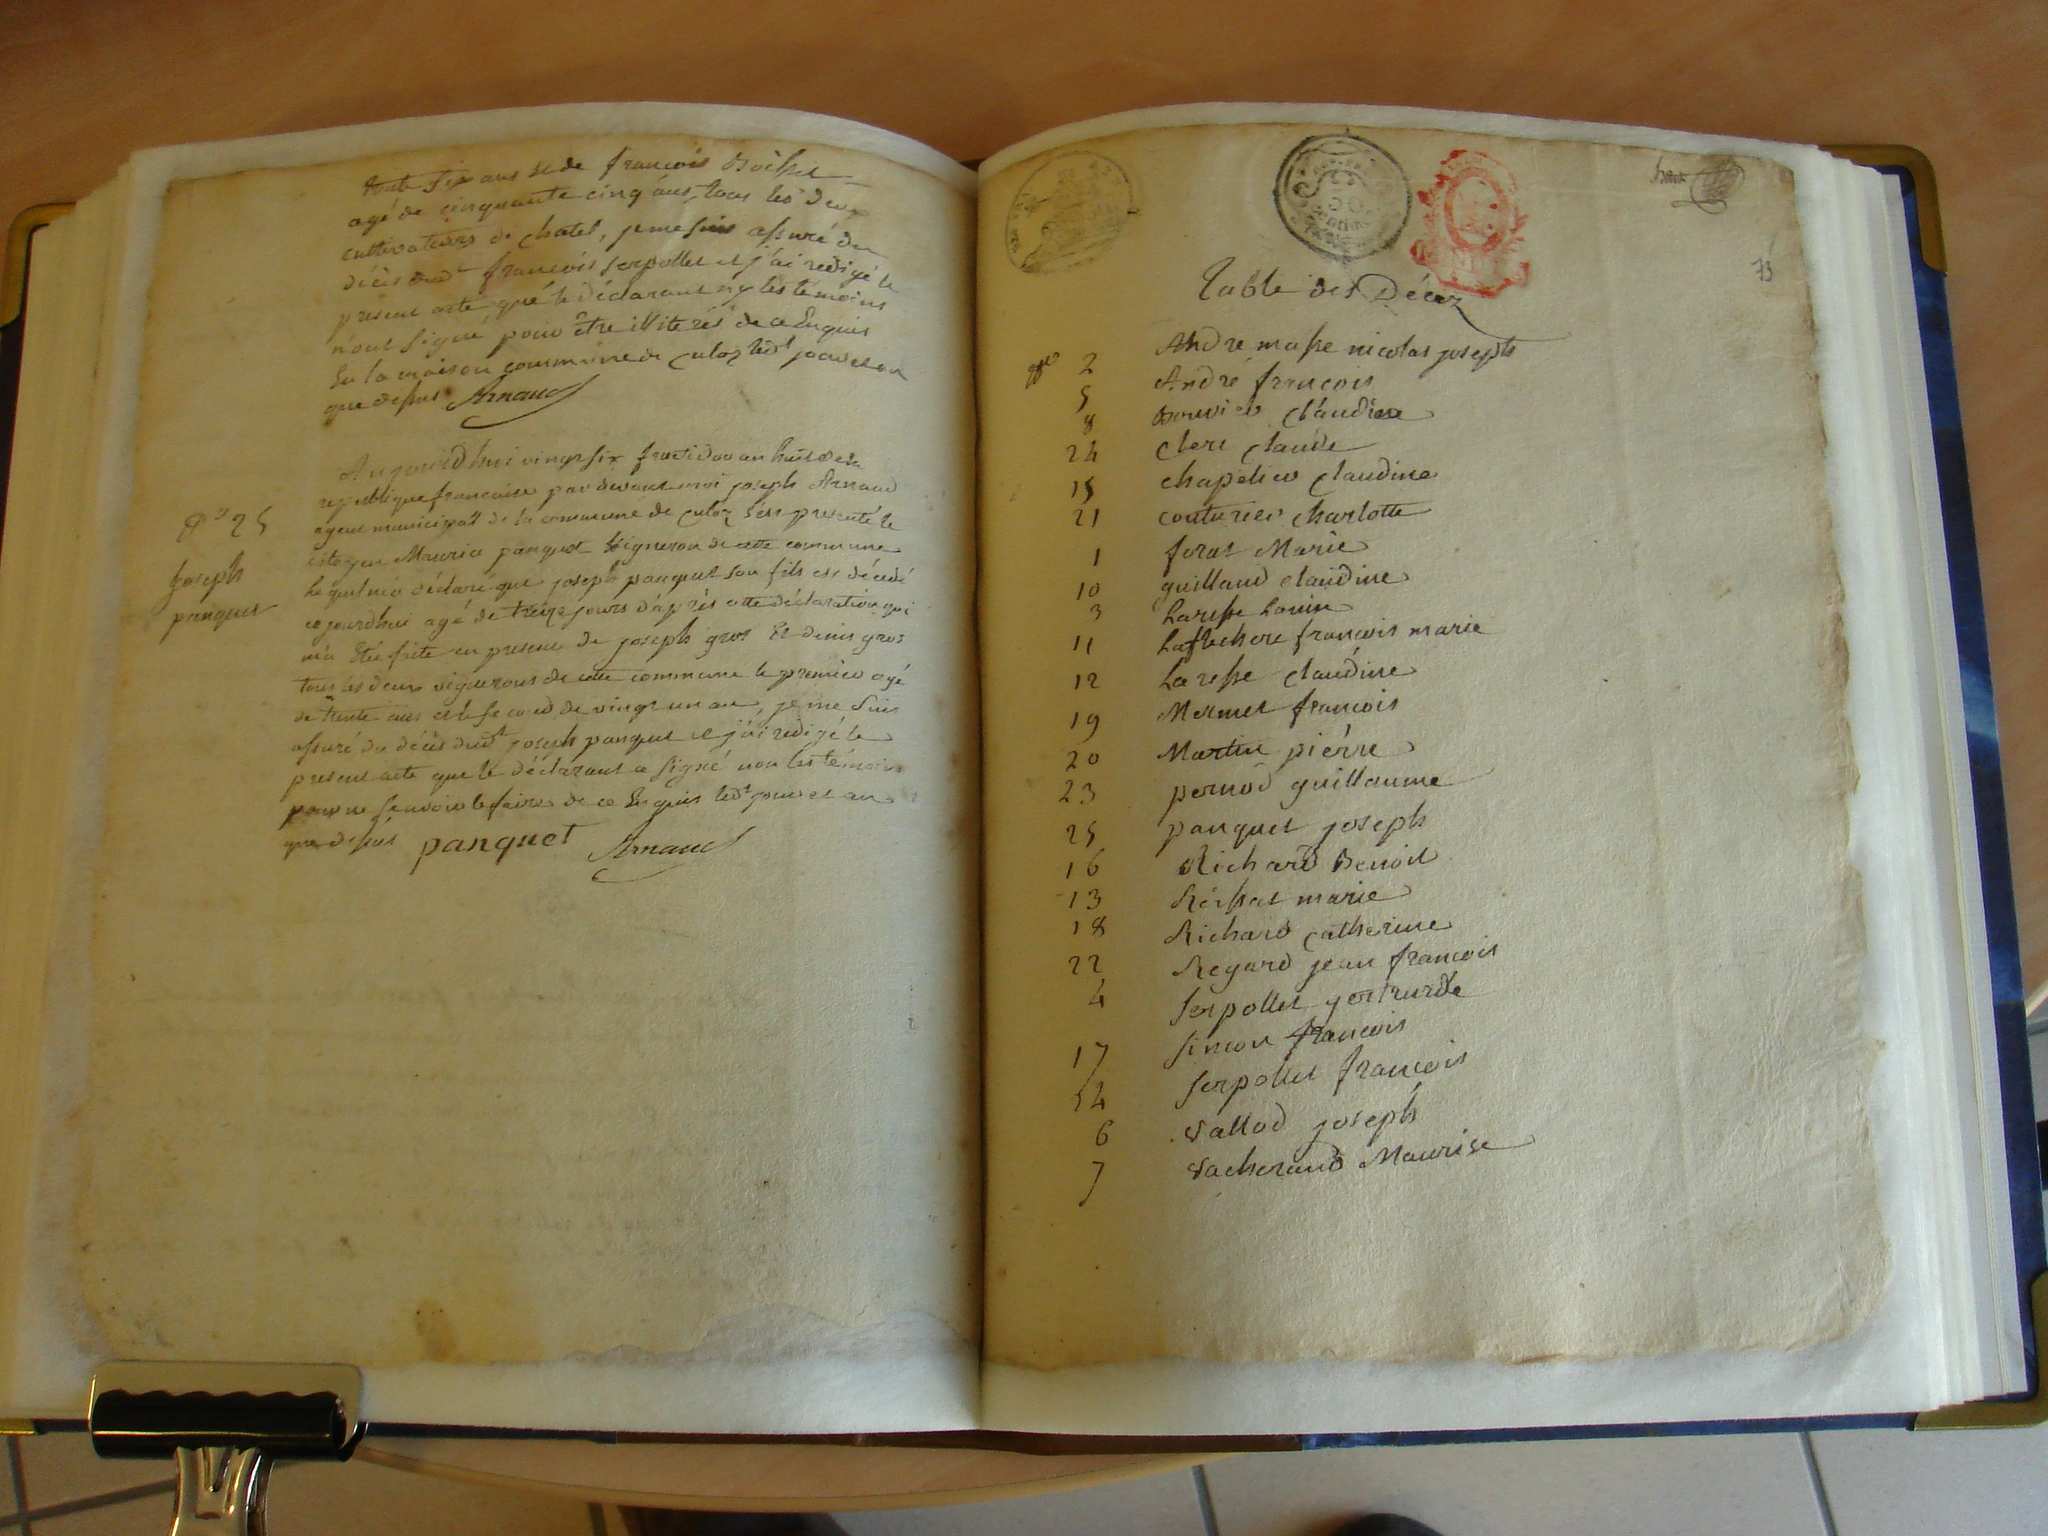 trente six ans et de françois
agé de cinquante cinq ans, tous les deux
cultivateurs de chatel, je me suis assuré du
décès dudt françois serpollet et j'ai redigé le
présent acte, que le déclarant ny les témoins
n'ont signé pour être illiterés de ce Enquis
En la maison commune de culoz ledt jour et an
que dessus Arnaud
Aujourd'hui vingt six fructidor an huit de la
republique francaise par devant moi joseph Arnaud
agent municipal de la commune de culoz s'est presenté le
citoyen Maurice panquet vigneron de cette commune
Lequel m'a déclaré que joseph panquet son fils est décédé
cejourdhui agé de treize jours d'après cette déclaration qui
m'a Eté faite en presence de joseph gros Et denis gros
tous les deux vignerons de cette commune le premier agé
de trente ans et le second de vingt un an, je me suis
assuré du décès dudt joseph panquet et j'ai redigé le
present acte que le déclarant a signé non les témoins
pour ne scavoir le faire de ce Enquis ledt jour et an
que dessus panquet Arnaud
25
Joseph
panquet
73
Table des Décèz
2 André masse nicolas joseph
5 André françois
8 Bouvier claudine
24 clerc claude
15 chapelier claudine
21 couturier charlotte
1 forat Marie
10 guilland claudine
3 Laresse
11 Laflechere francois marie
12 Laresse claudine
19 Mermet françois
20 Martin piérre
23 pernod guillaume
25 panquet joseph
16 Richard Benoit
13 marie
18 Richard catherine
22 Regard jean francois
4 serpollet gertrurde
17 simon francois
24 serpollet francois
6 vallod joseph
7 vacherand Maurise